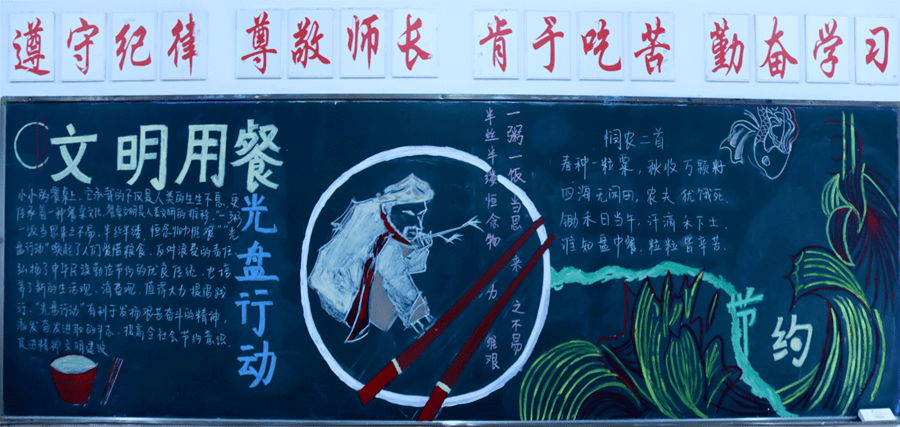 遵守纪律 尊敬师长 肯于吃苦 勤奋学习
文明用餐
光盘行动
小小的餐桌上，它承载的不仅是人类的生生不息，更
一饭当思来之不易，半丝半缕，恒念物力维艰""光
盘行动"唤起了人们爱惜粮食、反对浪费的
弘扬了中华民族勤俭节约的优良传统，也培
养了新的生活观、消费观，值得大力提倡践
行，"光盘行动"有利于发扬艰苦奋斗的精神，
提高全社会节约意识，
促进精神文明建设
一粥一饭 当思 来 之不易
半丝半缕 恒念物 力 维艰
悯农二首
春种一粒粟，秋收万颗籽
四海无闲田，农夫犹饿死
锄禾日当午，汗滴禾下土
谁知盘中餐，粒粒皆辛苦。
节约